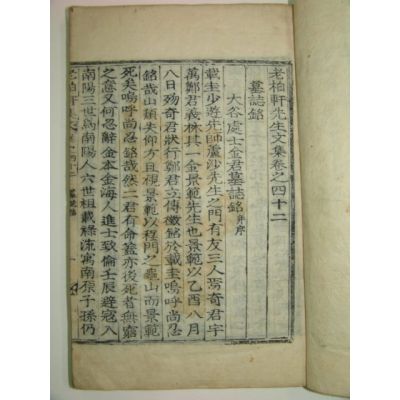 老柏軒先生文集卷之四十二
墓誌銘
大谷處士金君墓誌銘 幷序
載圭少遊先師蘆沙先生之門有友三人焉奇君宇
萬鄭君義林其一金景範先生也景範以乙酉八月
八日歾奇君狀行鄭君立傳徵銘於載圭嗚呼尚忍
銘哉山頹失仰方且視景範以程門之龜山而景範
死矣嗚呼尚忍銘哉然二君有命蓋亦後死者無窮
之意又何忍辭金本金海人進士致倫壬辰避寇入
南陽三世爲南陽人六世祖載祿流寓南原子孫仍